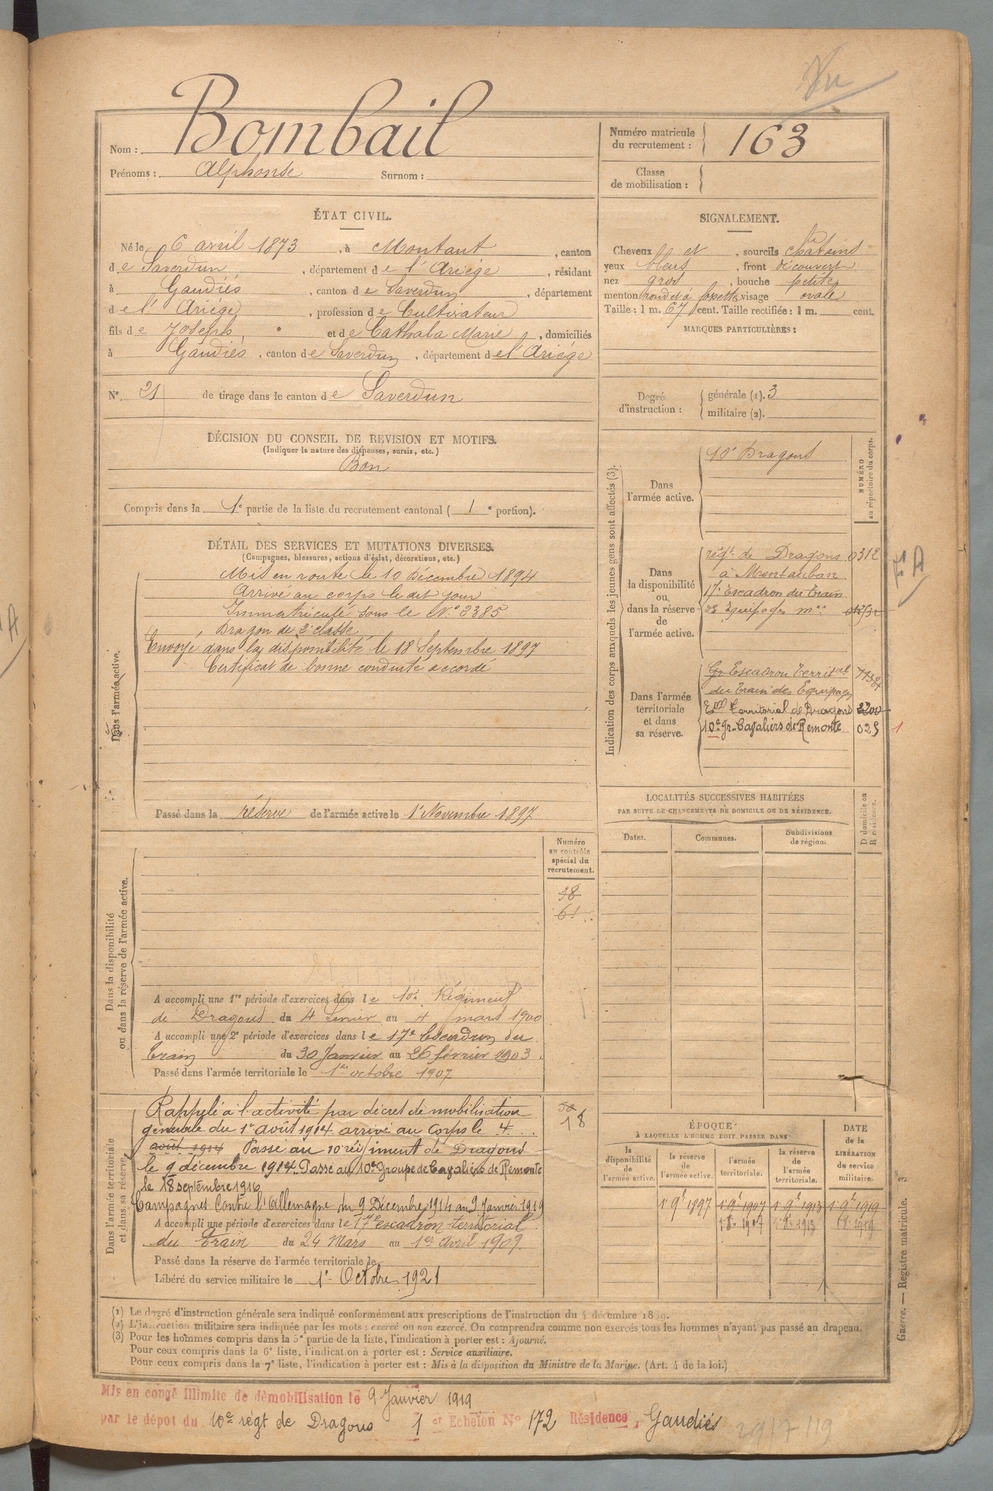 Vu
Nom : Bombail
Prénoms : Alphonse Surnom :
Numéro matricule du recrutement : 163
Classe de mobilisation :
ÉTAT CIVIL.
Né le 6 avril 1873, à Montaut, canton
de Saverdun, département de l'Ariège, résidant
à Gaudiés, canton de Saverdun, département
de l'Ariège, profession de Cultivateur
fils de Joseph et de Cathala Marie, domiciliés
à Gaudiés, canton de Saverdun, département de l'Ariège
N° 21 de tirage dans le canton de Saverdun
DÉCISION DU CONSEIL DE REVISION ET MOTIFS.
(Indiquer la nature des dispenses, sursis, etc.)
Bon
Compris dans la 1e partie de la liste du recrutement cantonal (1e portion).
SIGNALEMENT.
Cheveux et, sourcils châtains
yeux bleus, front découvert
nez gros, bouche petite
menton rond et à fossette visage ovale
Taille : 1 m. 67 cent. Taille rectifiée : 1 m. cent.
MARQUES PARTICULIÈRES :
Degré d'instruction : générale (1). 3
militaire (2).
DÉTAIL DES SERVICES ET MUTATIONS DIVERSES.
(Campagnes, blessures, actions d'éclat, décorations, etc.)
Dans l'armée active.
Mis en route le 10 Décembre 1894
Arrivé au corps le dit jour
Immatriculé sous le N° 3385
Dragon de 2e classe
Envoyé dans la disponibilité le 18 Septembre 1897
Certificat de bonne conduite accordé
Passé dans la réserve de l'armée active le 1er Novembre 1897
Indication des corps auxquels les jeunes gens sont affectés (3).
NUMÉRO au répertoire du corps.
Dans l'armée active.
10e Dragons
Dans la disponibilité ou dans la réserve de l'armée active.
régt de Dragons 0312
à Montauban
17e Escadron du Train
des équipages mres
Dans l'armée territoriale et dans sa réserve.
Escadron territal
du Train des Equipages
Eon Territorial de Dragons
10e Gr. Cavaliers de Remonte 025
LOCALITÉS SUCCESSIVES HABITÉES
PAR SUITE DE CHANGEMENTS DE DOMICILE OU DE RÉSIDENCE.
Dates. Communes. Subdivisions de région. D domicile ou R résidence.
Dans la disponibilité ou dans la réserve de l'armée active.
Numéro au contrôle spécial du recrutement.
38
61
A accompli une 1re période d'exercices dans le 10e Régiment
de Dragons du 4 Février au 4 mars 1900
A accompli une 2e période d'exercices dans le 17e Escadron du
Train du 30 Janvier au 26 février 1903
Passé dans l'armée territoriale le 1er octobre 1907
Dans l'armée territoriale et dans sa réserve.
18
Rappelé à l'activité par décret de mobilisation
générale du 1er août 1914 arrivé au Corps le 4
août 1914 Passé au 10 régiment de Dragons
le 9 décembre 1914 Passé au 10e Groupe de Cavaliers de Remonte
le 18 septembre 1916
Campagnes Contre l'Allemagne du 9 Décembre 1914 au 9 Janvier 1919
A accompli une période d'exercices dans le 17e Escadron territorial
du Train du 24 Mars au 1er Avril 1909
Passé dans la réserve de l'armée territoriale le
Libéré du service militaire le 1er Octobre 1921
ÉPOQUE
À LAQUELLE L'HOMME DOIT PASSER DANS
la disponibilité de l'armée active. la réserve de l'armée active. l'armée territoriale. la réserve de l'armée territoriale.
DATE de la LIBÉRATION du service militaire.
1 9e 1897 1 9e 1907 1 9e 1913 1 9e 1919
(1) Le degré d'instruction générale sera indiqué conformément aux prescriptions de l'instruction du 4 décembre 1889.
(2) L'instruction militaire sera indiquée par les mots : exercé ou non exercé. On comprendra comme non exercés tous les hommes n'ayant pas passé au drapeau.
(3) Pour les hommes compris dans la 5e partie de la liste, l'indication à porter est : Ajourné.
Pour ceux compris dans la 6e liste, l'indication à porter est : Service auxiliaire.
Pour ceux compris dans la 7e liste, l'indication à porter est : Mis à la disposition du Ministre de la Marine. (Art. 4 de la loi.)
Guerre. — Registre matricule.
Mis en congé illimité de démobilisation le 9 Janvier 1919
par le dépôt du 10e régt de Dragons 1er Echelon N° 172 Résidence, Gaudiés